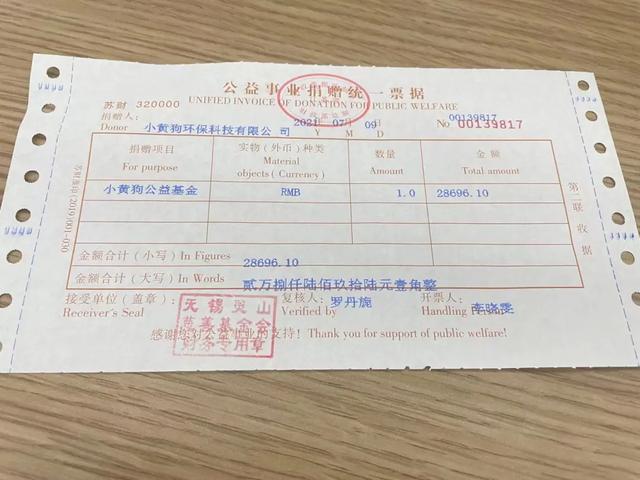 公益事业捐赠统一票据
UNIFIED INVOICE OF DONATION FOR PUBLIC WELFARE
苏财 320000
捐赠人： 小黄狗环保科技有限公司 2021 年 07 月 09 日 00139817
Donor Y M D No 00139817
捐赠项目 实物（外币）种类 数量 金额
For purpose Material objects (Currency) Amount Total amount
小黄狗公益基金 RMB 1.0 28696.10
金额合计（小写）In Figures 28696.10
金额合计（大写）In Words 贰万捌仟陆佰玖拾陆元壹角整
接受单位（盖章）： 复核人： 罗丹旎 开票人： 李晓雯
Receiver's Seal Verified by Handling Person
无锡灵山
慈善基金会
财务专用章
感谢您对公益事业的支持！ Thank you for support of public welfare!
第二联 收据